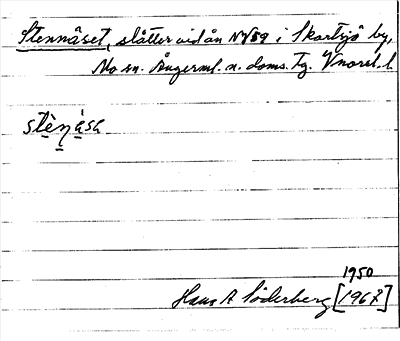 Stennäset, slåtter vid ån NV89 i Skortsjö by,
Mo sn. Ångerml. n. doms. tg. Vnorrl. l.
stènása
1950
Hans A Söderberg [1967]